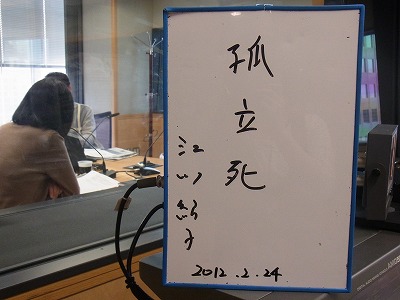 孤立死
江川紹子
2012.2.24